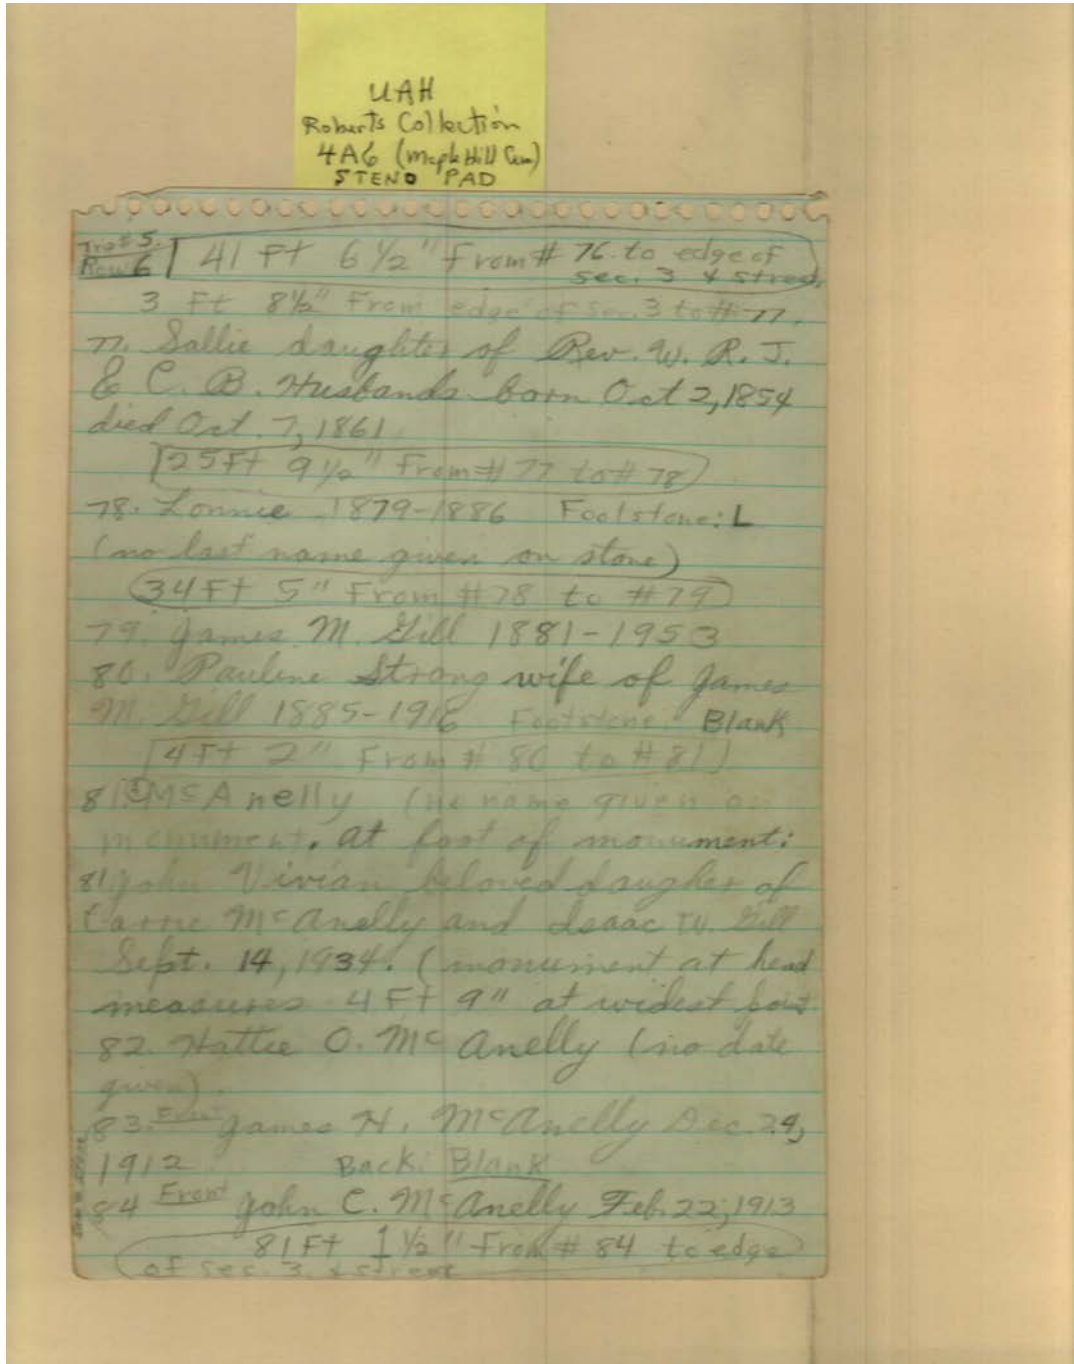 UAH
Roberts Collection
4A6 (Maple Hill Cem)
STENO PAD
Row 6
41 Ft 6 1/2" From # 76 to edge of
sec. 3 & street.
3 Ft 8 1/2" From edge of Sec. 3 to # 77.
77. Sallie daughter of Rev. W. R. J.
& C. B. Husbands born Oct 2, 1854
died Oct. 7, 1861
25 Ft 9 1/2" From # 77 to # 78
78. Lonnie 1879-1886 Footstone: L
(no last name given on stone)
34 Ft 5" From #78 to #79
79. James M. Gill 1881-1953
80. Pauline Strong wife of James
M. Gill 1885-1916 Footstone: Blank
4 Ft 2" From # 80 to # 81
81 McAnelly (no name given on
monument. at foot of monument:
81 John Vivian beloved daugher of
Carrie McAnelly and Isaac W. Gill
Sept. 14, 1934. (monument at head
measures 4 Ft 9" at widest point
82. Hattie O. McAnelly (no date
given).
83. Front James H. McAnelly Dec. 24,
1912 Back: Blank
84 Front John C. McAnelly Feb. 22, 1913
81 Ft 1 1/2" From # 84 to edge
of sec. 3 & street